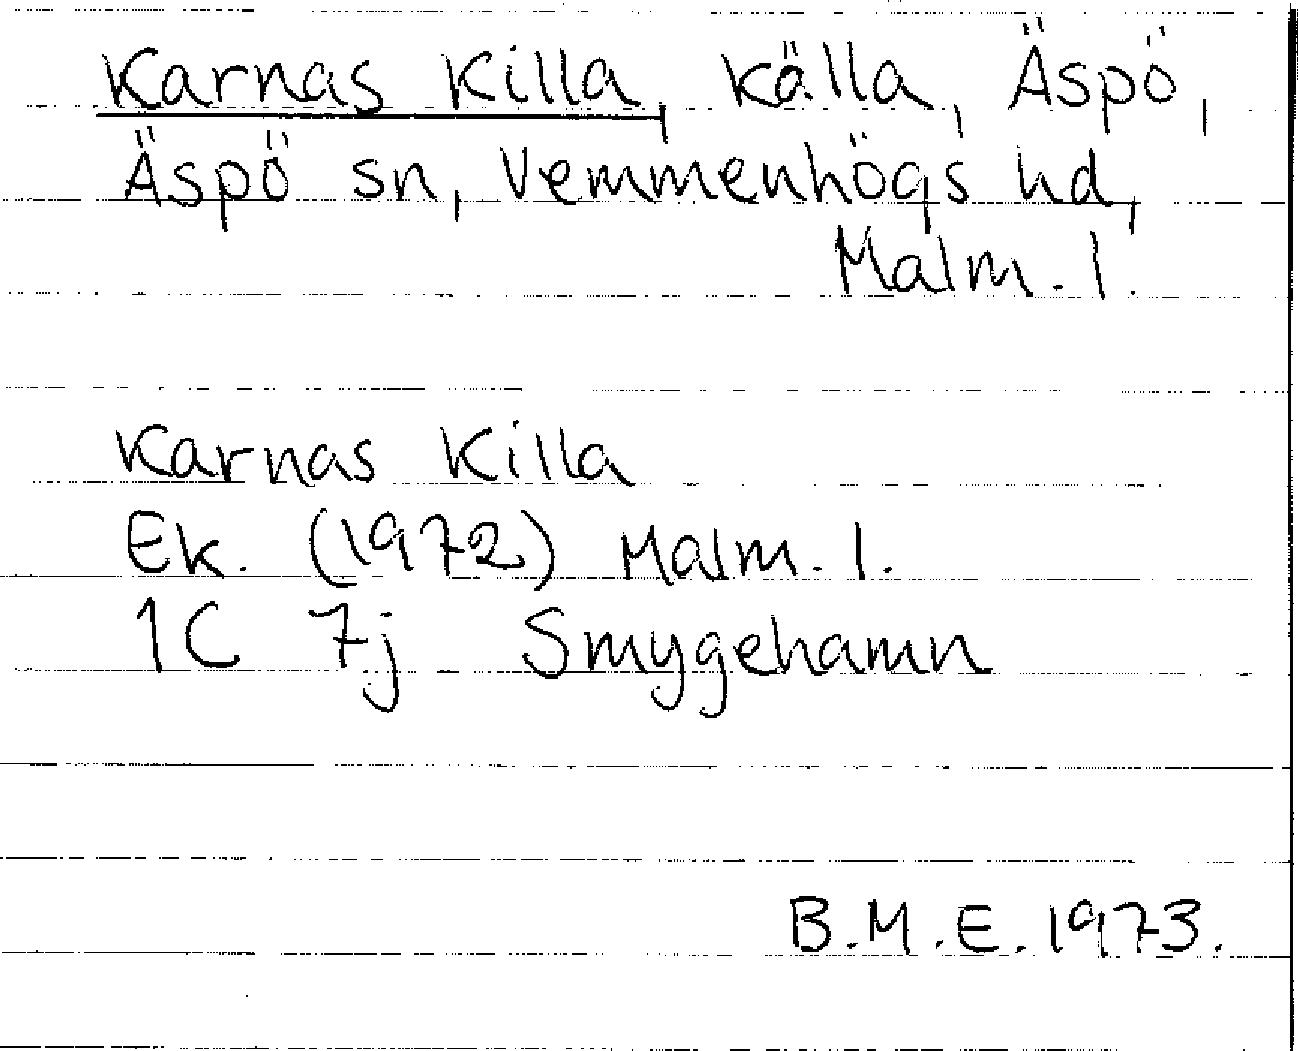 Karnas Killa, källa, Äspö,
Äspö sn, Vemmenhögs hd,
Malm. l.
Karnas Killa
Ek. (1972) Malm. l.
1C 7j Smygehamn
B.M.E. 1973.